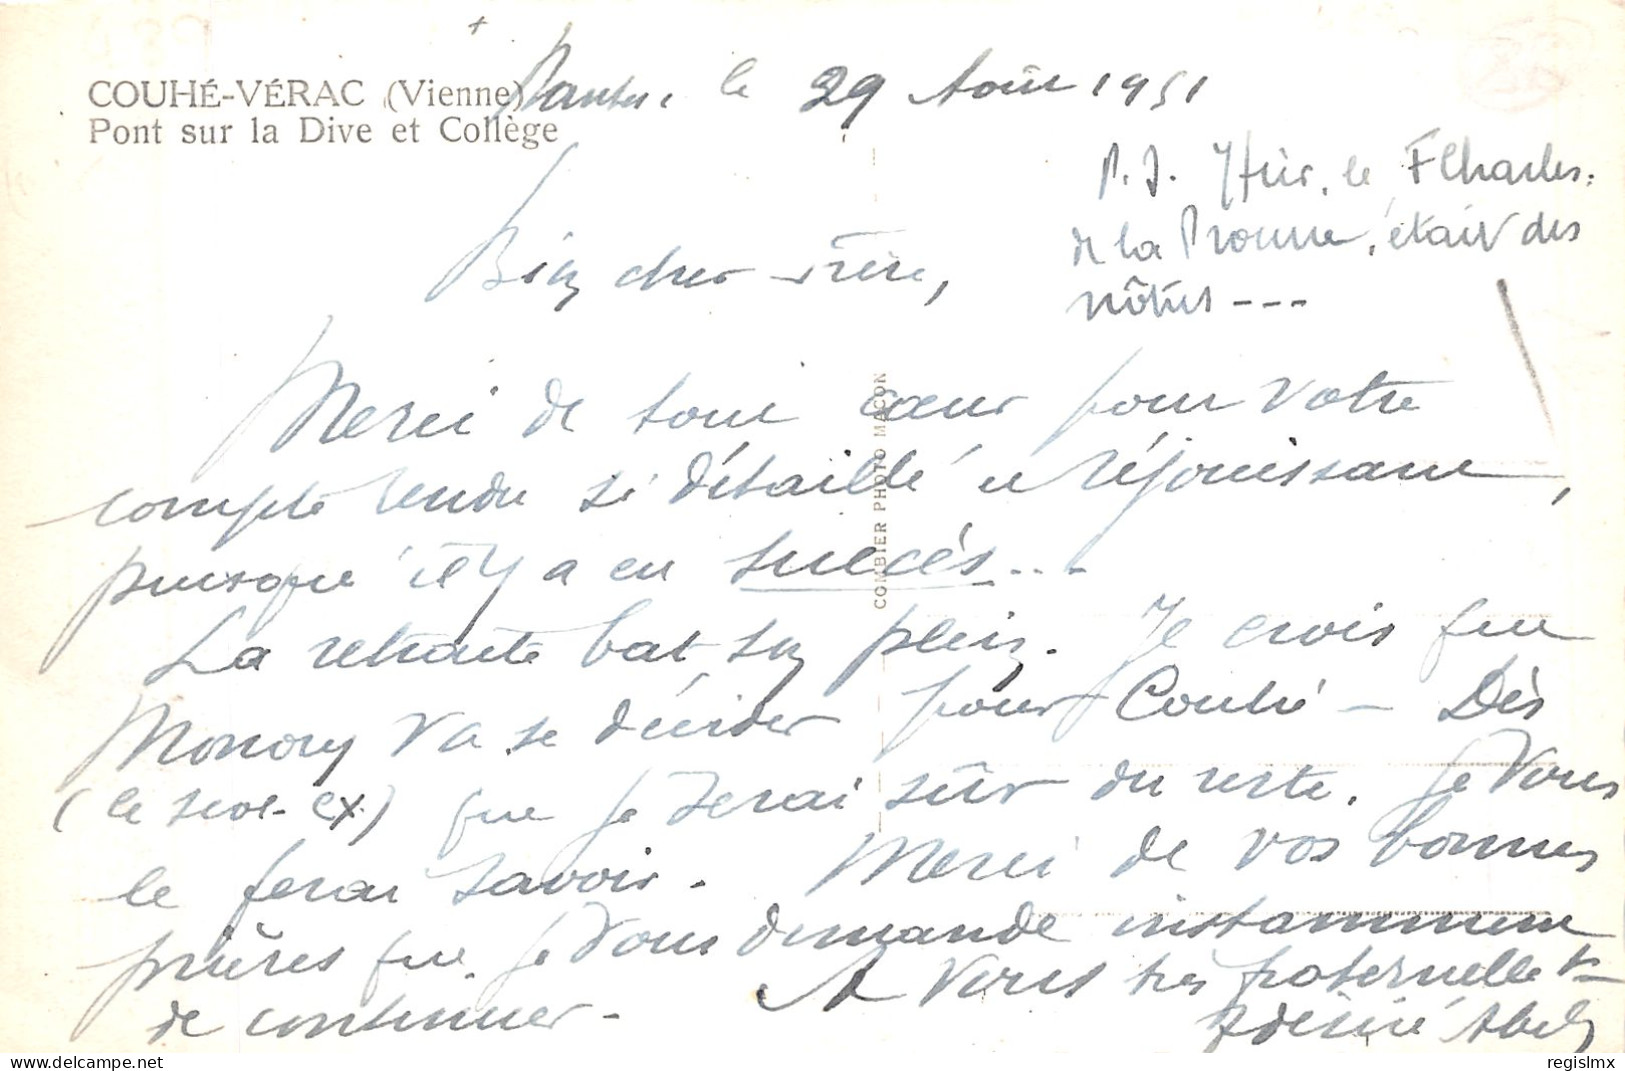 COUHÉ-VÉRAC (Vienne)
Pont sur la Dive et Collège
Nantes, le 29 Août 1951
P.S. Hier, le F Charles
de la , était des
nôtres ---
Bien cher Frère,
Merci de tout cœur pour votre
compte rendu si détaillé et réjouissant,
puisqu'il y a eu succès...
La retraite bat son plein. Je crois que
Monory va se décider pour Couhé - Dès
(le ) que je serai sûr du reste, je vous
le ferai savoir. Merci de vos bonnes
prières que je vous demande instamment
de continuer. A vous très fraternellement
f Désiré Abel
COMBIER PHOTO MACON
regislmx